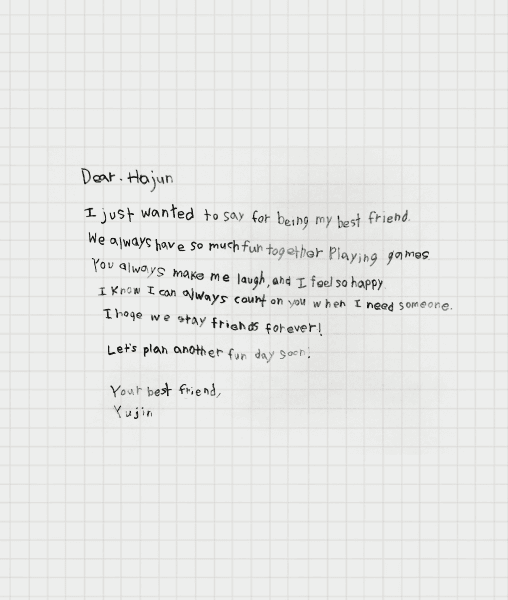 Dear. Hajun
I just wanted to say for being my best friend.
We always have so much fun together Playing games
You always make me laugh, and I feel so happy.
I know I can always count on you when I need someone.
I hoge we stay friends forever!
Let's plan another fun day soon!
Your best friend,
Yujin